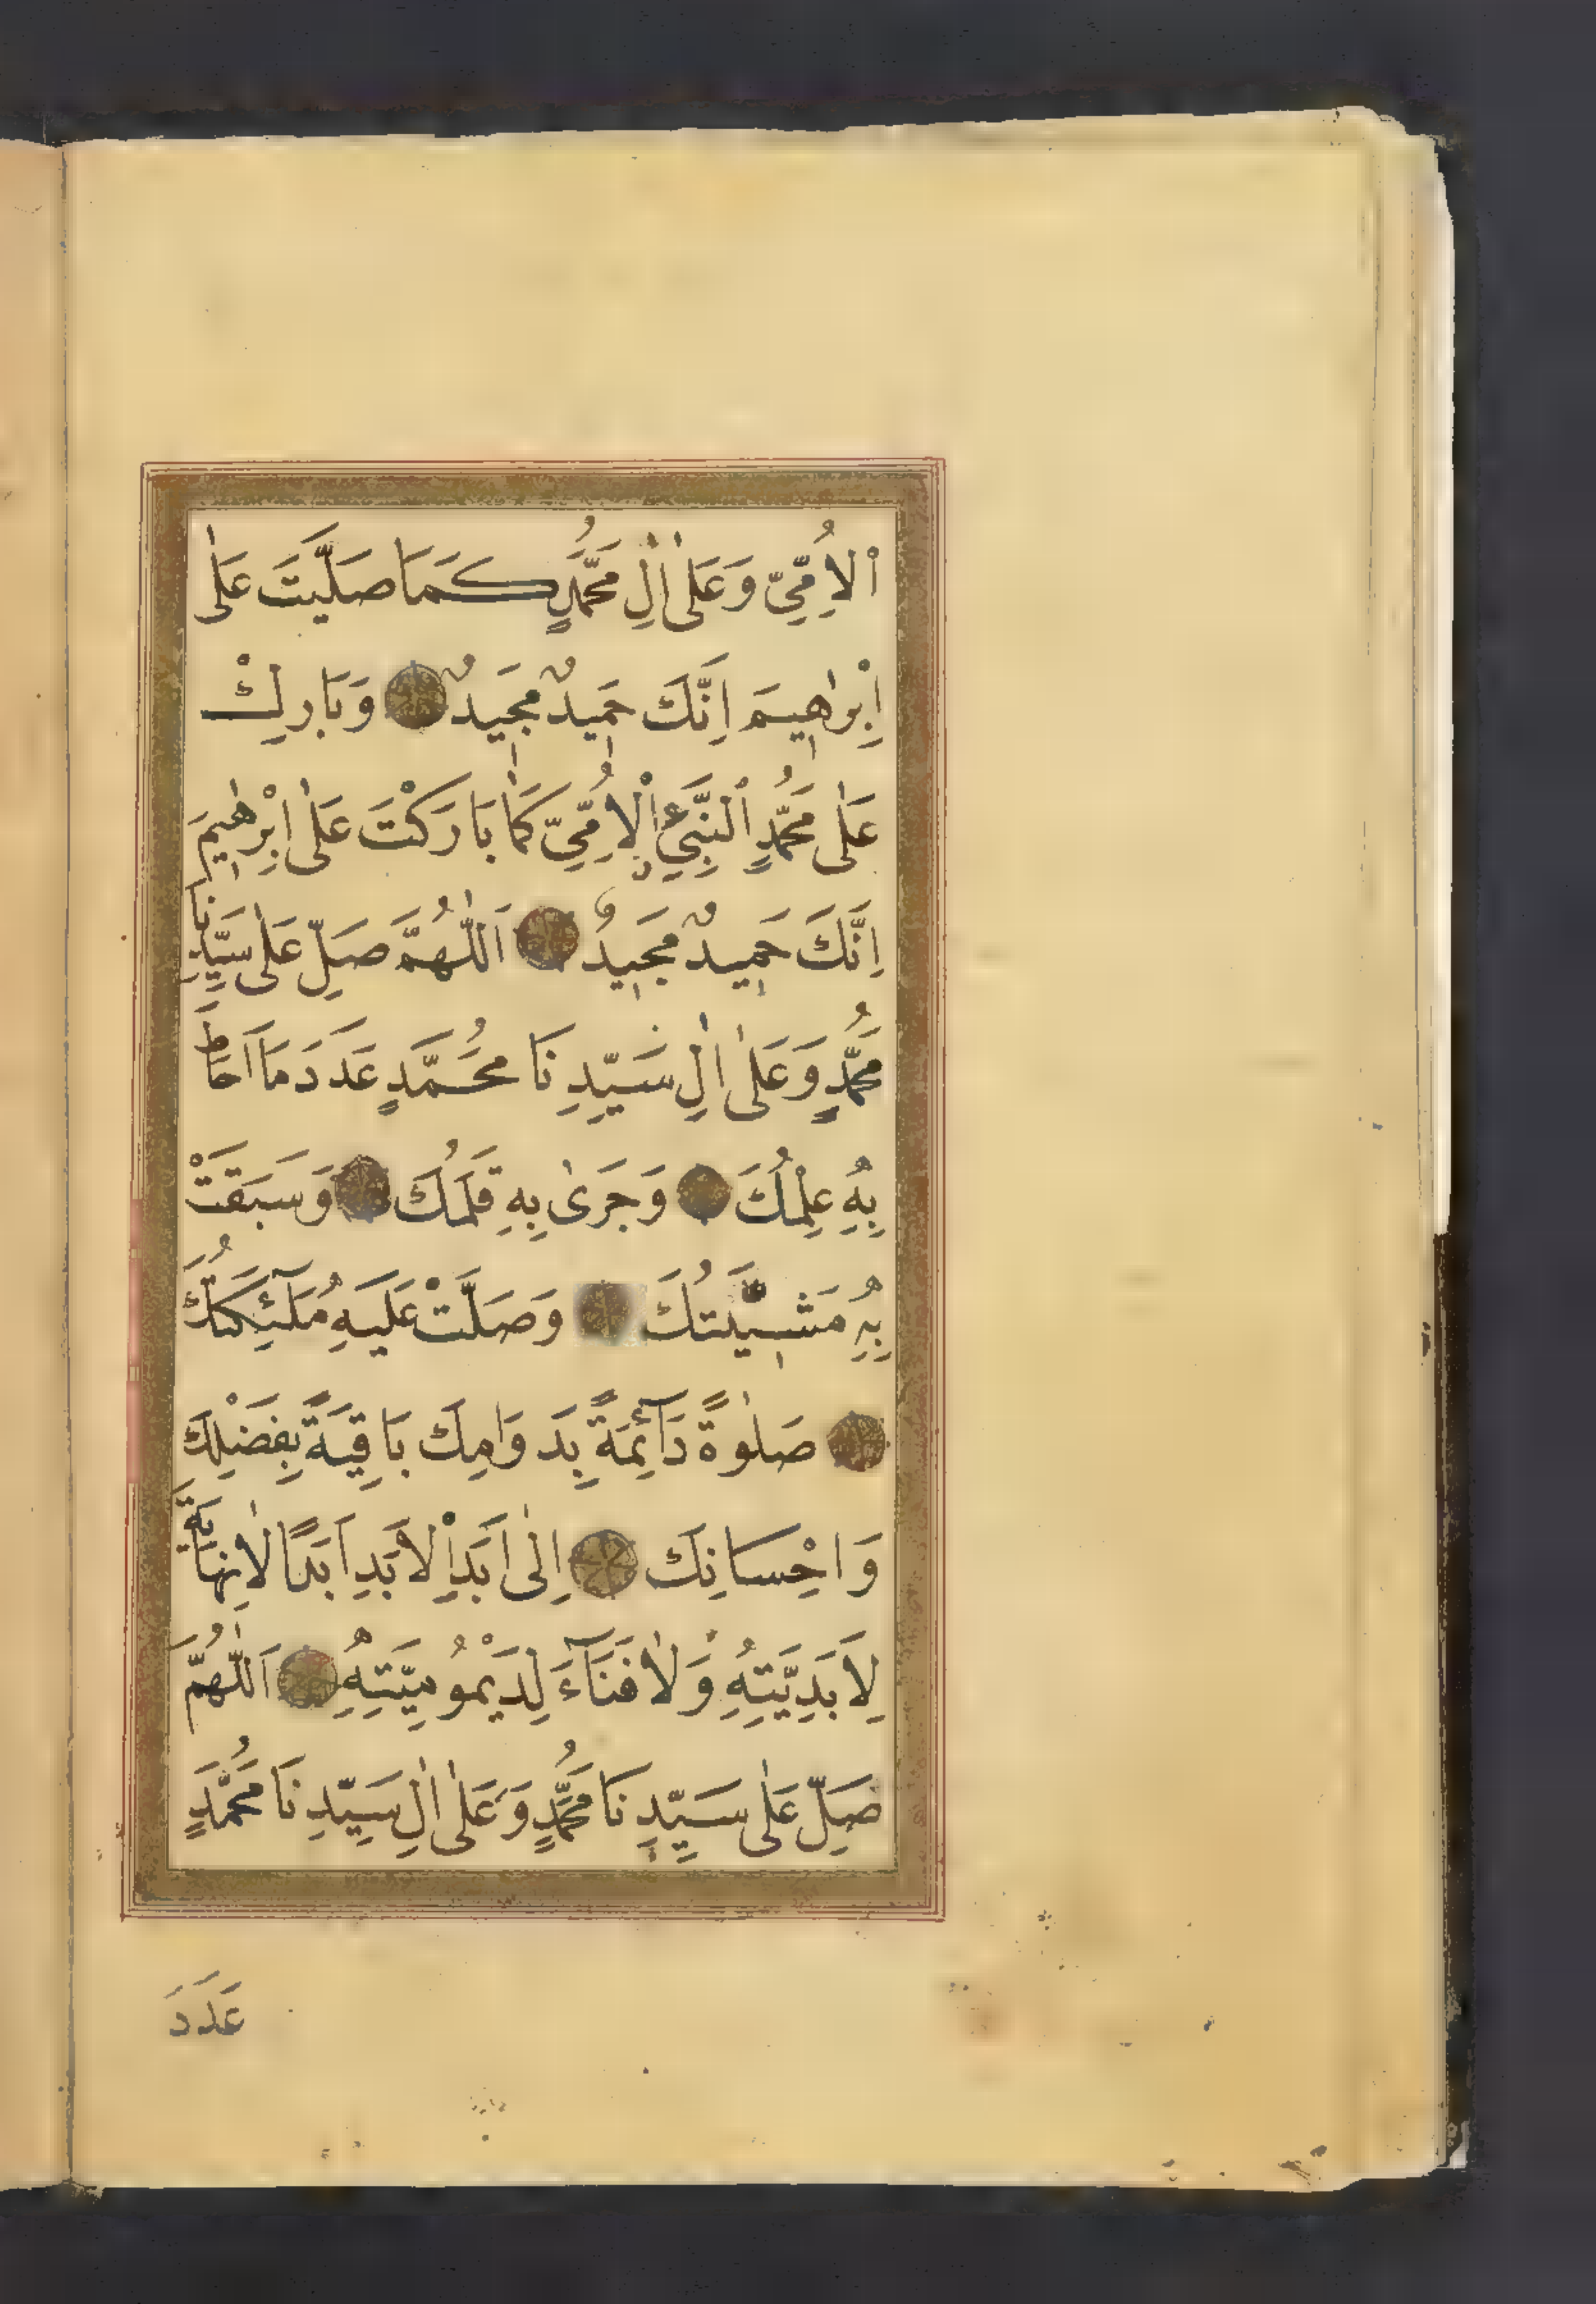 اْلاُمِّىِّ وَعَلٰى اٰلِ مُحَمَّدٍ كَمَا صَلَّيْتَ عَلٰى
اِبْرٰهِيمَ اِنَّكَ حَمِيدٌ مَجِيدٌ وَبَارِكْ
عَلٰى مُحَمَّدٍ النَّبِىِّ اْلاُمِّىِّ كَمَا بَارَكْتَ عَلٰى اِبْرٰهِيمَ
اِنَّكَ حَمِيدٌ مَجِيدٌ اَللّٰهُمَّ صَلِّ عَلٰى سَيِّدِنَا
مُحَمَّدٍ وَعَلٰى اٰلِ سَيِّدِنَا مُحَمَّدٍ عَدَدَ مَا اَحَاطَ
بِهِ عِلْمُكَ وَجَرٰى بِهِ قَلَمُكَ وَسَبَقَتْ
بِهِ مَشِيَّتُكَ وَصَلَّتْ عَلَيْهِ مَلٰٓئِكَتُكَ
صَلٰوةً دَآئِمَةً بِدَوَامِكَ بَاقِيَةً بِفَضْلِكَ
وَاِحْسَانِكَ اِلٰى اَبَدِ اْلاَبَدِ اَبَدًا لَانِهَايَةَ
لِاَبَدِيَّتِهِ وَلَا فَنَآءَ لِدَيْمُومِيَّتِهِ اَللّٰهُمَّ
صَلِّ عَلٰى سَيِّدِنَا مُحَمَّدٍ وَعَلٰى اٰلِ سَيِّدِنَا مُحَمَّدٍ
عَدَدَ